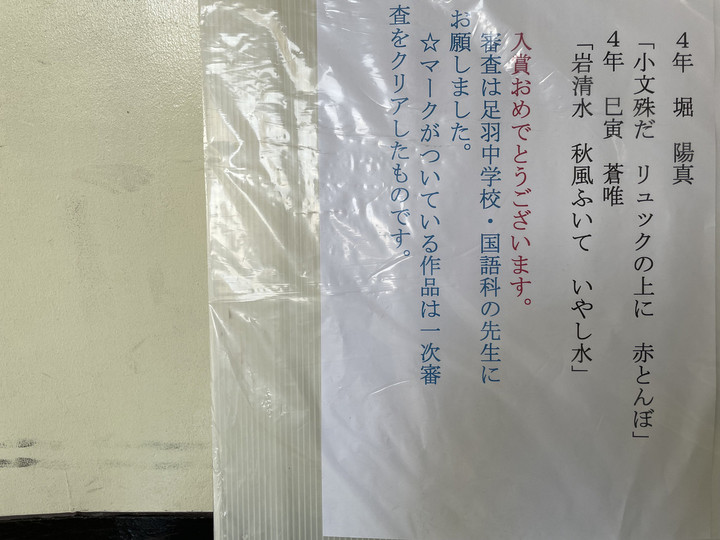 4年　堀　陽真
「小文殊だ　リュックの上に　赤とんぼ」
4年　巳寅　蒼唯
「岩清水　秋風ふいて　いやし水」
入賞おめでとうございます。
審査は足羽中学校・国語科の先生に
お願しました。
☆マークがついている作品は一次審
査をクリアしたものです。